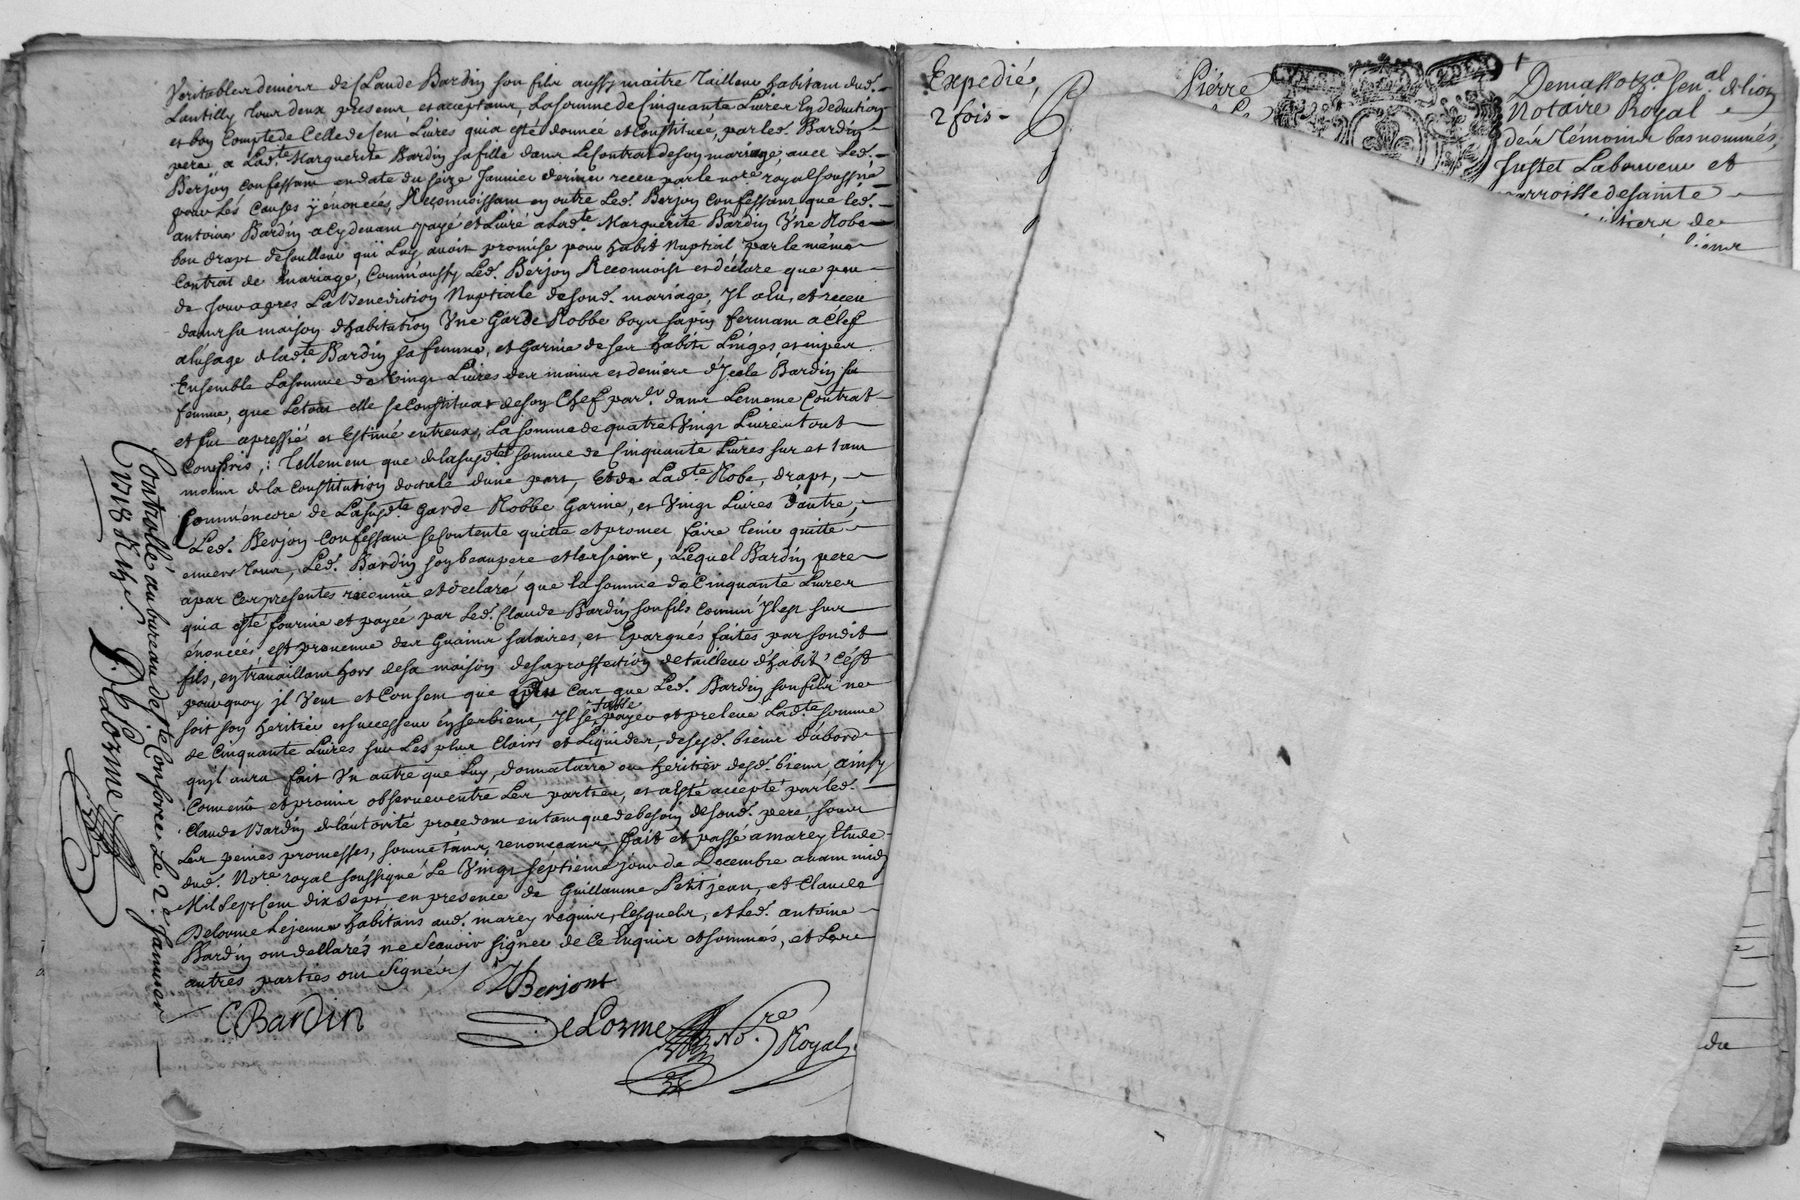 Veritables deniers de Claude Bardin son fils aussy maitre Tailleur habitant dud.
Lantilly Tous deux presens et acceptans, La somme de Cinquante Livres En deduction
et bon Compte de Celle de Cent Livres qui a esté donnée et Constituée, par led. Bardin
pere a Lad.te Marguerite Bardin sa fille dans Le Contrat de son mariage, avec Led.
Berjon Confessant en date du seize Janvier dernier receu par le no.re royal soussiné
pour Les Causes y enoncées, Reconnoissant en outre Led. Berjon Confessant que led.
antoine Bardin a Cy devant payé et Livré a Lad.te Marguerite Bardin Vne Robe
bon drapt de soulleur qu'il Luy avoit promise pour habit Nuptial par le mémes
Contrat de mariage, Comm'aussy Led. Berjon Reconnoist et déclare que peu
de Jours apres La Benediction Nuptiale de sond. mariage, Il a eu, et receu
dans sa maison d'habitation Vne Garde Robbe boyn sapin fermant a Clef
a l'usage de lad.te Bardin sa femme, et Garnie de ses habits Linges et
Ensemble La somme de Vingt Livres des mains et deniers d'Jcelle Bardin sa
femme, que Letout elle se Constitua de son Chef par dans Lememe Contrat
et fut apressié et Estimé entreux, La somme de quatre Vingt Livres tout
Compris; Tellement que de la susd.te somme de Cinquante Livres sur et tant
moins de la Constitution doctale d'une part, et de Lad.te Robe, drapt,
Comm'encore de La susd.te Garde Robbe Garnie, et Vingt Livres d'autre,
Led. Berjon Confessant se Contente quitte et promet faire tenir quitte
envers Tous, Led. Bardin son beaupere et les siens, Lequel Bardin pere
a par Ces presentes reconnu et declaré que la somme de Cinquante Livres
qui a esté fournie et payée par Led. Claude Bardin son fils Comm' Il est sur
énoncées, est provenue des Guains salaires, et Epargnés faites par sondit
fils, en travaillant hors de sa maison de sa proffection de tailleur d'habit, C'est
pourquoy il Veut et Consent que Cas que Led. Bardin son fils ne
soit son heritier et successeur en ses biens, Il se fasse payer et preleve Lad.te somme
de Cinquante Livres sur Les plus Clairs et Liquides, de sesd. biens d'abord
qu'il aura fait Vn autre que Luy, donnataire ou heritier desd. biens, ainsy
Convenû et promis observer entre Les parties, et a esté accepté par led.
Claude Bardin de l'autorité procedant en tant que de besoin de sond. pere, sous
Les peines promesses, soumettans, renonceans, fait et passé a marey Etude
dud. No.re royal soussigné Le Vingt septieme jour de Decembre avant midy
Mil Sept Cent dix sept en presence de Guillaume Petit jean, et Claude
Delorme Lejeune habitans aud. marey requis, lesquels, et led. antoine
Bardin ont dellarés ne scavoir signer de Ce Enquis et sommés, et Les
autres parties ont Signées
Berjont
C Bardin
DeLorme No.re Royal
Controllé au bureau de s.te Consorce Le 2.e Janvier
1718
Delorme
Expedié,
2 fois -
Pierre
Notaire Royal
des Témoins bas nommés,
Justet Laboureur et
parroisse de sainte